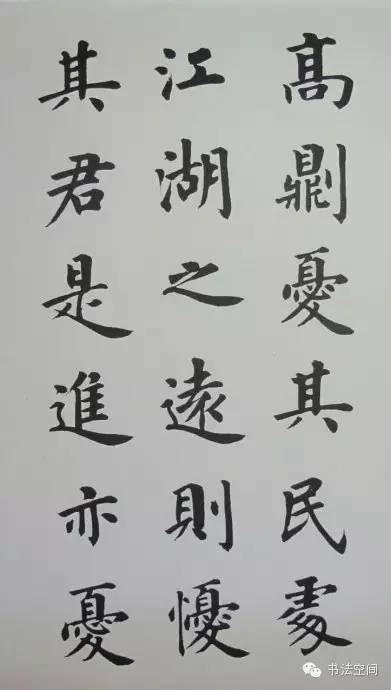 高𠟭憂其民處
江湖之遠則懮
其君是進亦憂
书法空间